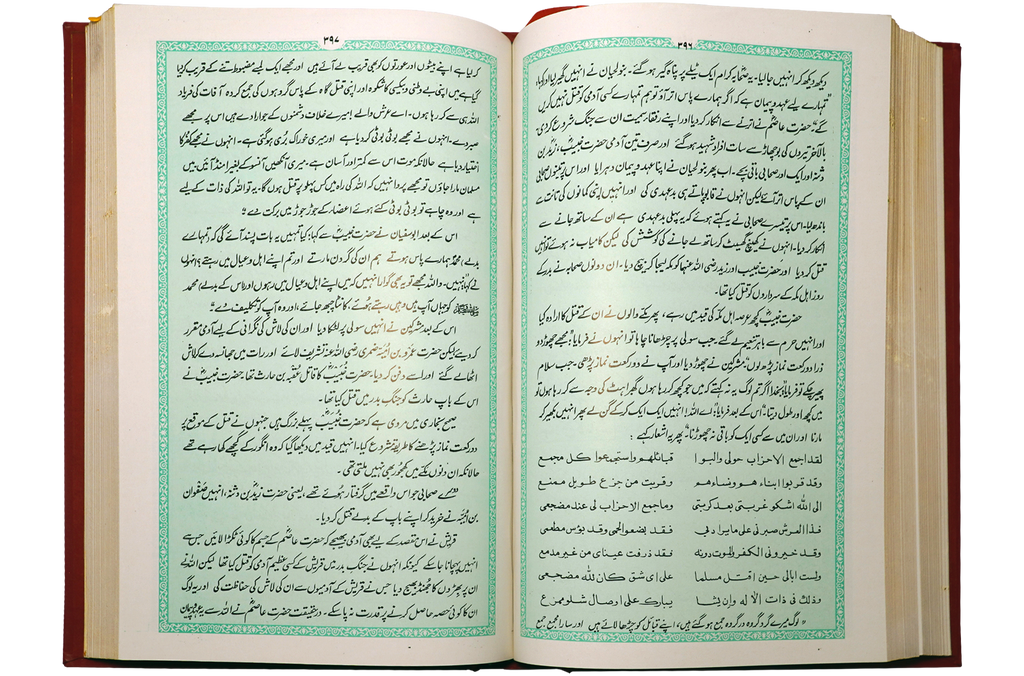 ۳۹۶
دیکھ دیکھ کر انہیں جالیا۔ یہ صحابہ کرام ایک ٹیلے پر پناہ گیر ہوگئے۔ بنو لحیان نے انہیں گھیر لیا اور کہا،
"تمہارے لیے عہد و پیمان ہے کہ اگر ہمارے پاس اتر آؤ تو ہم تمہارے کسی آدمی کو قتل نہیں کریں
گے" حضرت عاصمؓ نے اترنے سے انکار کر دیا اور اپنے رفقاء سمیت ان سے جنگ شروع کر دی۔
بالآخر تیروں کی بوچھاڑ سے سات افراد شہید ہو گئے اور صرف تین آدمی حضرت خبیبؓ، زیدؓ بن
دثنہ اور ایک اور صحابی باقی بچے۔ اب پھر بنو لحیان نے اپنا عہد و پیمان دہرایا اور اس پر تینوں صحابی
ان کے پاس اتر آئے لیکن انہوں نے قابو پاتے ہی بدعہدی کی اور انہیں اپنی کمانوں کی تانت سے
باندھ لیا۔ اس پر تیسرے صحابی نے یہ کہتے ہوئے کہ یہ پہلی بدعہدی ہے ان کے ساتھ جانے سے
انکار کر دیا۔ انہوں نے کھینچ گھسیٹ کر ساتھ لے جانے کی کوشش کی لیکن کامیاب نہ ہوئے تو انہیں
قتل کر دیا اور حضرت خبیب اور زید رضی اللہ عنہما کو مکہ لیجا کر بیچ دیا۔ ان دونوں صحابہ نے بدر کے
روز اہل مکہ کے سرداروں کو قتل کیا تھا۔
حضرت خبیبؓ کچھ عرصہ اہل مکہ کی قید میں رہے، پھر مکے والوں نے ان کے قتل کا ارادہ کیا
اور انہیں حرم سے باہر تنعیم لے گئے۔ جب سولی پر چڑھانا چاہا تو انہوں نے فرمایا: "مجھے چھوڑ دو
ذرا دو رکعت نماز پڑھ لوں" مشرکین نے چھوڑ دیا اور آپ نے دو رکعت نماز پڑھی۔ جب سلام
پھیر چکے تو فرمایا: "بخدا اگر تم لوگ یہ نہ کہتے کہ میں جو کچھ کر رہا ہوں گھبراہٹ کی وجہ سے کر رہا ہوں تو
میں کچھ اور طول دیتا" اس کے بعد فرمایا: "اے اللہ! انہیں ایک ایک کرکے گن لے پھر انہیں بکھیر کر
مارنا اور ان میں سے کسی ایک کو باقی نہ چھوڑنا" پھر یہ اشعار کہے:
لقد اجمع الاحزاب حولی والبوا قبائلهم واستجمعوا کل مجمع
وقد قربوا ابناءهم ونساءهم وقربت من جزع طویل ممنع
الی اللہ اشکو غربتی بعد کربتی وما جمع الاحزاب لی عند مضجعی
فذا العرش صبرنی علی ما یراد بی فقد بضعوا لحمی وقد بؤس مطعمی
وقد خیرونی الکفر والموت دونه فقد ذرفت عینای من غیر مدمع
ولست ابالی حین اقتل مسلما علی ای شق کان للہ مضجعی
وذلک فی ذات الالٰه وان یشا یبارک علی اوصال شلو ممزع
"لوگ میرے گرد گروہ در گروہ جمع ہو گئے ہیں، اپنے قبائل کو چڑھا لائے ہیں اور سارا مجمع جمع
۳۹۷
کر لیا ہے اپنے بیٹوں اور عورتوں کو بھی قریب لے آئے ہیں اور مجھے ایک لمبے مضبوط تنے کے قریب کیا
گیا ہے میں اپنی بے وطنی و بیکسی کا شکوہ اور اپنی قتل گاہ کے پاس گروہوں کی جمع کردہ آفات کی فریاد
اللہ ہی سے کر رہا ہوں۔ اے عرش والے! میرے خلاف دشمنوں کے جو ارادے ہیں اس پر مجھے
صبر دے۔ انہوں نے مجھے بوٹی بوٹی کر دیا ہے اور میری خوراک بُری ہو گئی ہے۔ انہوں نے مجھے کفر کا
اختیار دیا ہے حالانکہ موت اس سے کمتر اور آسان ہے۔ میری آنکھیں آنسو کے بغیر امنڈ آئیں۔ میں
مسلمان مارا جاؤں تو مجھے پروا نہیں کہ اللہ کی راہ میں کس پہلو پر قتل ہوں گا۔ یہ تو اللہ کی ذات کے لیے
ہے اور وہ چاہے تو بوٹی بوٹی کئے ہوئے اعضاء کے جوڑ جوڑ میں برکت دے"
اس کے بعد ابوسفیان نے حضرت خبیبؓ سے کہا: کیا تمہیں یہ بات پسند آئے گی کہ تمہارے
بدلے محمدؐ ہمارے پاس ہوتے ہم ان کی گردن مارتے اور تم اپنے اہل و عیال میں رہتے؟ انہوں
نے کہا "نہیں۔ واللہ مجھے تو یہ بھی گوارا نہیں کہ میں اپنے اہل و عیال میں رہوں اور اس کے بدلے محمد
ﷺ کو جہاں آپ ہیں وہیں رہتے ہوئے کانٹا چبھ جائے، اور وہ آپ کو تکلیف دے"
اس کے بعد مشرکین نے انہیں سولی پر لٹکا دیا اور ان کی لاش کی نگرانی کے لیے آدمی مقرر
کر دیے لیکن حضرت عمرو بن امیہ ضمری رضی اللہ عنہ تشریف لائے اور رات میں جھانسہ دے کر لاش
اٹھا لے گئے اور اسے دفن کر دیا۔ حضرت خبیبؓ کا قاتل عقبہ بن حارث تھا۔ حضرت خبیبؓ نے
اس کے باپ حارث کو جنگ بدر میں قتل کیا تھا۔
صحیح بخاری میں مروی ہے کہ حضرت خبیبؓ پہلے بزرگ ہیں جنہوں نے قتل کے موقع پر
دو رکعت نماز پڑھنے کا طریقہ شروع کیا۔ انہیں قید میں دیکھا گیا کہ وہ انگور کے گچھے کھا رہے تھے
حالانکہ ان دنوں مکے میں کھجور بھی نہیں ملتی تھی۔
دوسرے صحابی جو اس واقعے میں گرفتار ہوئے تھے، یعنی حضرت زیدؓ بن دثنہ، انہیں صفوان
بن امیہ نے خرید کر اپنے باپ کے بدلے قتل کر دیا۔
قریش نے اس مقصد کے لیے بھی آدمی بھیجے کہ حضرت عاصمؓ کے جسم کا کوئی ٹکڑا لائیں جس سے
انہیں پہچانا جا سکے کیونکہ انہوں نے جنگ بدر میں قریش کے کسی عظیم آدمی کو قتل کیا تھا لیکن اللہ نے
ان پر بھڑوں کا جھنڈ بھیج دیا جس نے قریش کے آدمیوں سے ان کی لاش کی حفاظت کی اور یہ لوگ
ان کا کوئی حصہ حاصل کرنے پر قدرت نہ پا سکے۔ درحقیقت حضرت عاصمؓ نے اللہ سے یہ عہد و پیمان